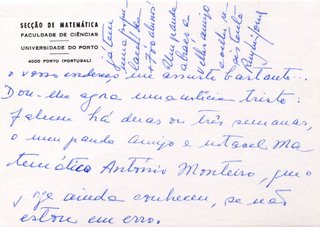 SECÇÃO DE MATEMÁTICA
FACULDADE DE CIÊNCIAS
UNIVERSIDADE DO PORTO
4000 PORTO (PORTUGAL)
já tem
uma
700 alunos!
Um grande
abraço a
velho amigo
o vosso endereço um assusta bastante...
Dou-lhe agora uma notícia triste:
Faleceu há duas ou três semanas,
o meu grande amigo e notável Ma-
temático António Monteiro, que o
ainda conheceu, se não
estou em erro.